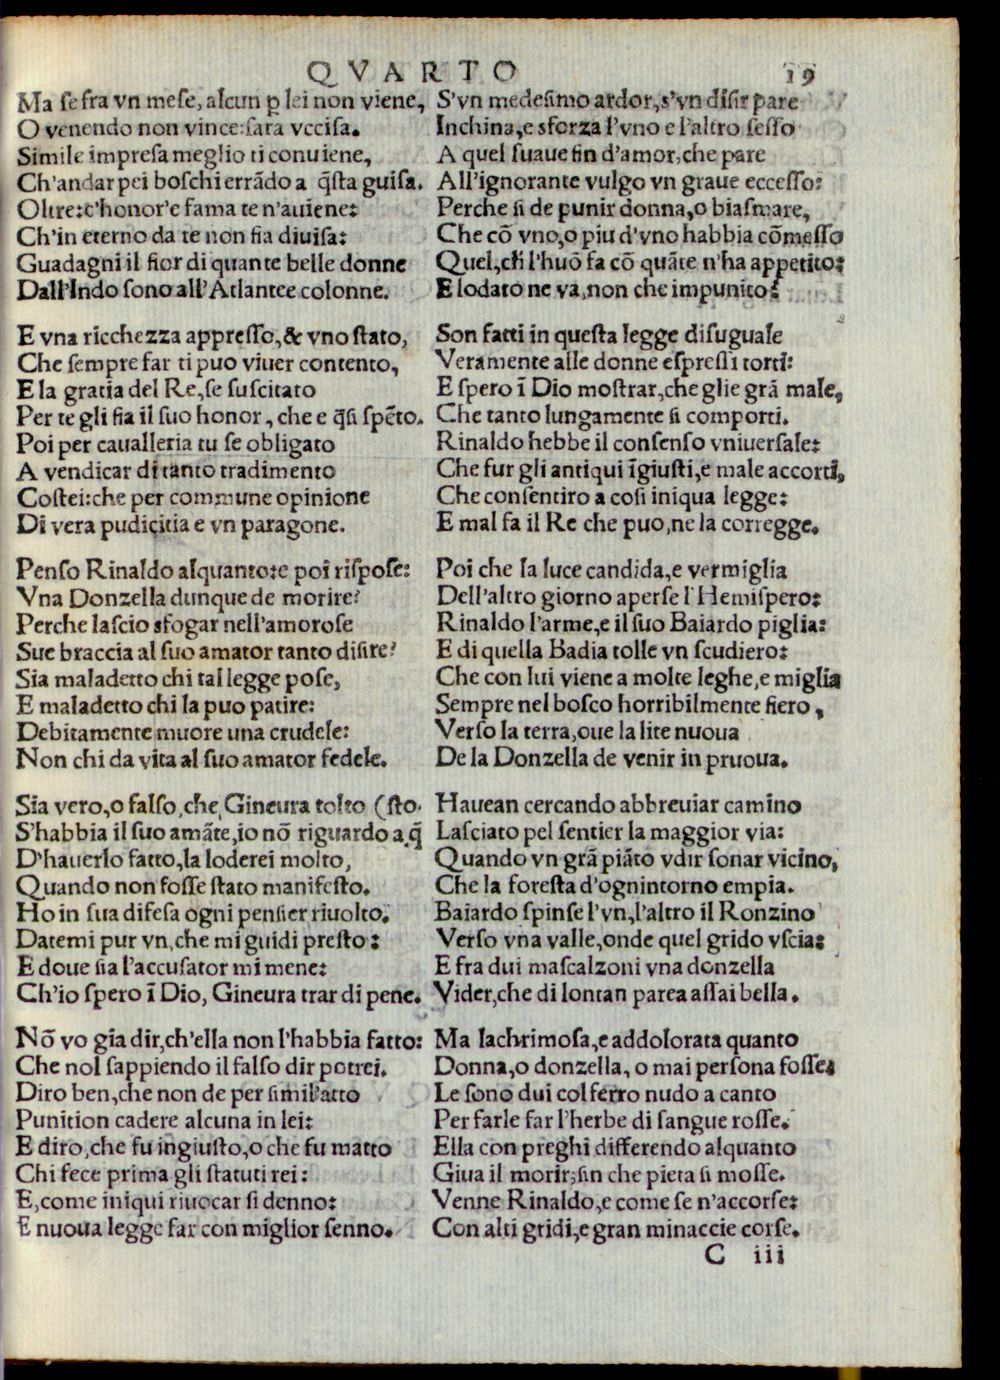 QVARTO
19
Ma se fra vn mese, alcun ꝑ lei non viene,
O venendo non vince: sara vccisa.
Simile impresa meglio ti conuiene,
Ch'andar pei boschi errādo a q̄sta guisa.
Oltre: c'honor'e fama te n'auiene:
Ch'in eterno da te non fia diuisa:
Guadagni il fior di quante belle donne
Dall'Indo sono all'Atlantee colonne.
E vna ricchezza appresso, & vno stato,
Che sempre far ti puo viuer contento,
E la gratia del Re, se suscitato
Per te gli fia il suo honor, che e q̄si spēto.
Poi per caualleria tu se obligato
A vendicar di tanto tradimento
Costei: che per commune opinione
Di vera pudicitia e vn paragone.
Penso Rinaldo alquanto: e poi rispose:
Vna Donzella dunque de morire?
Perche lascio sfogar nell'amorose
Sue braccia al suo amator tanto disire?
Sia maladetto chi tal legge pose,
E maladetto chi la puo patire:
Debitamente muore una crudele:
Non chi da vita al suo amator fedele.
Sia vero, o falso, che Gineura tolto (sto.
S'habbia il suo amāte, io nō riguardo a q̄
D'hauerlo fatto, la loderei molto,
Quando non fosse stato manifesto.
Ho in sua difesa ogni pensier riuolto.
Datemi pur vn, che mi guidi presto:
E doue sia l'accusator mi mene:
Ch'io spero ī Dio, Gineura trar di pene.
Nō vo gia dir, ch'ella non l'habbia fatto:
Che nol sappiendo il falso dir potrei.
Diro ben, che non de per simil'atto
Punition cadere alcuna in lei:
E diro, che fu ingiusto, o che fu matto
Chi fece prima gli statuti rei:
E, come iniqui riuocar si denno:
E nuoua legge far con miglior senno.
S'vn medesimo ardor, s'vn disir pare
Inchina, e sforza l'vno e l'altro sesso
A quel suaue fin d'amor, che pare
All'ignorante vulgo vn graue eccesso:
Perche si de punir donna, o biasmare,
Che cō vno, o piu d'vno habbia cōmesso
Quel, ch l'huō fa cō quāte n'ha appetito:
E lodato ne va, non che impunito?
Son fatti in questa legge disuguale
Veramente alle donne espressi torti:
E spero ī Dio mostrar, che glie grā male,
Che tanto lungamente si comporti.
Rinaldo hebbe il consenso vniuersale:
Che fur gli antiqui īgiusti, e male accorti,
Che consentiro a cosi iniqua legge:
E mal fa il Re che puo, ne la corregge.
Poi che la luce candida, e vermiglia
Dell'altro giorno aperse l'Hemispero:
Rinaldo l'arme, e il suo Baiardo piglia:
E di quella Badia tolle vn scudiero:
Che con lui viene a molte leghe, e miglia
Sempre nel bosco horribilmente fiero,
Verso la terra, oue la lite nuoua
De la Donzella de venir in pruoua.
Hauean cercando abbreuiar camino
Lasciato pel sentier la maggior via:
Quando vn grā piāto vdir sonar vicino,
Che la foresta d'ognintorno empia.
Baiardo spinse l'vn, l'altro il Ronzino
Verso vna valle, onde quel grido vscia:
E fra dui mascalzoni vna donzella
Vider, che di lontan parea assai bella.
Ma lachrimosa, e addolorata quanto
Donna, o donzella, o mai persona fosse:
Le sono dui col ferro nudo a canto
Per farle far l'herbe di sangue rosse.
Ella con preghi differendo alquanto
Giua il morir, sin che pieta si mosse.
Venne Rinaldo, e come se n'accorse:
Con alti gridi, e gran minaccie corse.
C iii